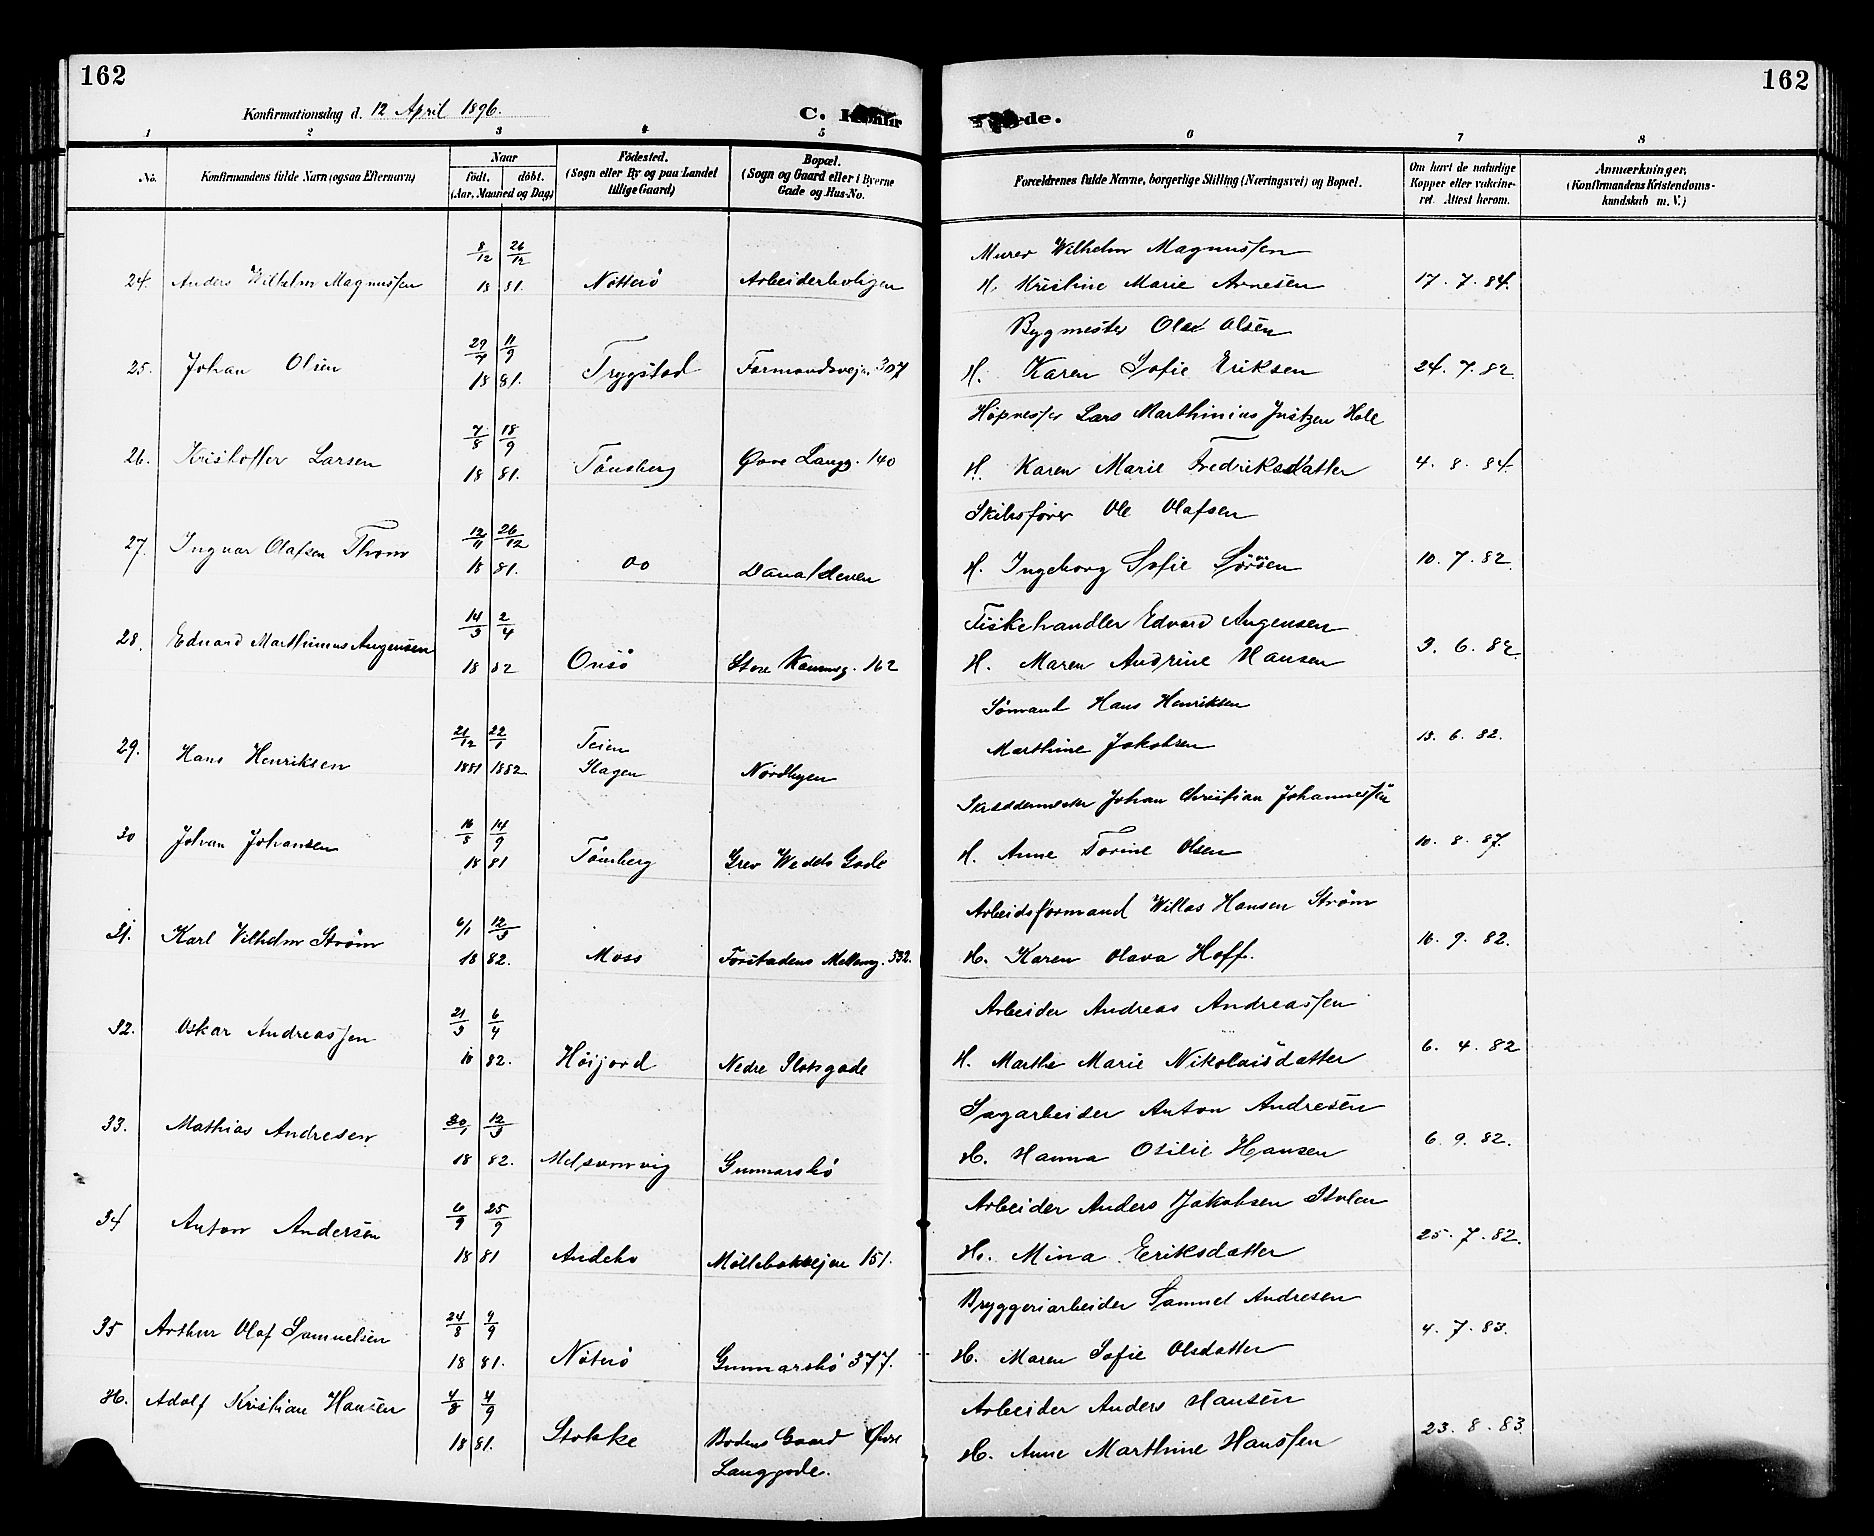 162
162
Konfirmationsdag d. 12 April 1896.
C. Konfir
ede.
1 2 3 4 5 6 7 8
No.
Konfirmandens fulde Navn (ogsaa Efternavn)
Naar
født. døbt.
(Aar, Maaned og Dag)
Fødested.
(Sogn eller By og paa Landet
tillige Gaard)
Bopæl.
(Sogn og Gaard eller i Byerne
Gade og Hus-No.
Forældrenes fulde Navne, borgerlige Stilling (Næringsvei) og Bopæl.
Om havt de naturlige
Kopper eller vakcine-
ret. Attest herom.
Anmærkninger.
(Konfirmandens Kristendoms-
kundskab m. V.)
8/12 26/12 Murer Wilhelm Magnussen
24. Anders Wilhelm Magnussen 18 81. Nøtterø Arbeiderboligen H. Kristine Marie Arnesen 17. 7. 84.
29/7 11/9 Bygmester Olaf Olsen
25. Johan Olsen 18 81. Trygstad Formandsvejen 307 H. Karen Sofie Eriksen 24. 7. 82.
7/8 18/9 Lars Marthinius Justzen Hole
26. Kristoffer Larsen 18 81. Tønsberg Øvre Langg. 140 H. Karen Marie Fredriksdatter 4. 8. 84.
12/11 26/12 Skibsfører Ole Olafsen
27. Ingvar Olafsen Thom 18 81. oo H. Ingeborg Sofie 10. 7. 82.
14/3 2/4 Fiskehandler Edvard Augensen
28. Edvard Marthinius Augensen 18 82 Onsø Store 162 H. Maren Andrine Hansen 3. 6. 82.
21/12 22/1 Teien Sømand Hans Henriksen
29. Hans Henriksen 1881 1882 Slagen Nordbyen Marthine Jakobsen 13. 6. 82.
16/8 14/9 Skræddermester Johan Christian Johannessen
30 Johan Johansen 18 81 Tønsberg Grev Wedels Gade H. Anne Torine Olsen 10. 8. 87.
6/1 12/3 Arbeidsformand Willas Hansen Strøm
31. Karl Vilhelm Strøm 18 82. Moss Forstadens Mellemg. 332. H. Karen Olava Hoff. 16. 9. 82.
21/3 6/4 Arbeider Andreas Andreassen
32. Oskar Andreassen 18 82. Høijord Nedre Slotsgade H. Marthe Marie Nikolaisdatter 6. 4. 82
30/1 12/3 Sagarbeider Anton Andresen
33. Mathias Andresen 18 82. Melsomvig Gunnarsbø H. Hanna Otilie Hansen 6. 9. 82.
6/9 25/9 Arbeider Anders Jakobsen Stolen
34 Anton Andersen 18 81 Andebo Møllebakvejen 151. H. Mina Eriksdatter 25. 7. 82.
24/8 4/9 Bryggeriarbeider Samuel Andresen
35 Arthur Olaf Samuelsen 18 81. Nøterø Gunnarsbø 377. H. Maren Sofie Olsdatter 4. 7. 83.
H. Adolf Kristian Hansen 4/8 4/9 Arbeider Anders Hansen
18 81. Stokke Bodens Gaard Øvre H. Anne Marthine Hanssen 23. 8. 83.
Langgade.